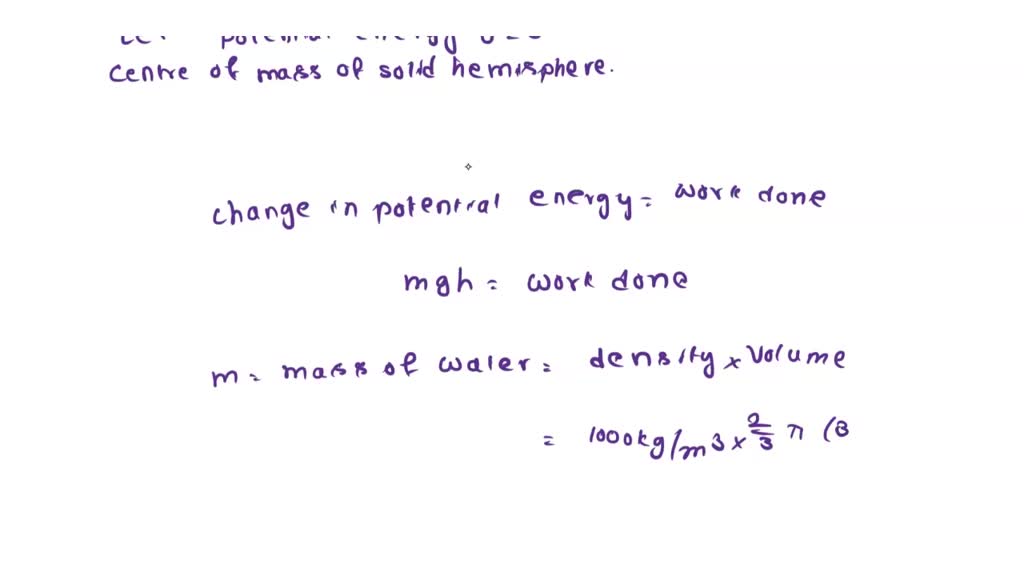 potential energy
centre of mass of solid hemisphere.
change in potential energy = work done
mgh = work done
m = mass of water = density × volume
= 1000kg/m3 × 2/3 π (8